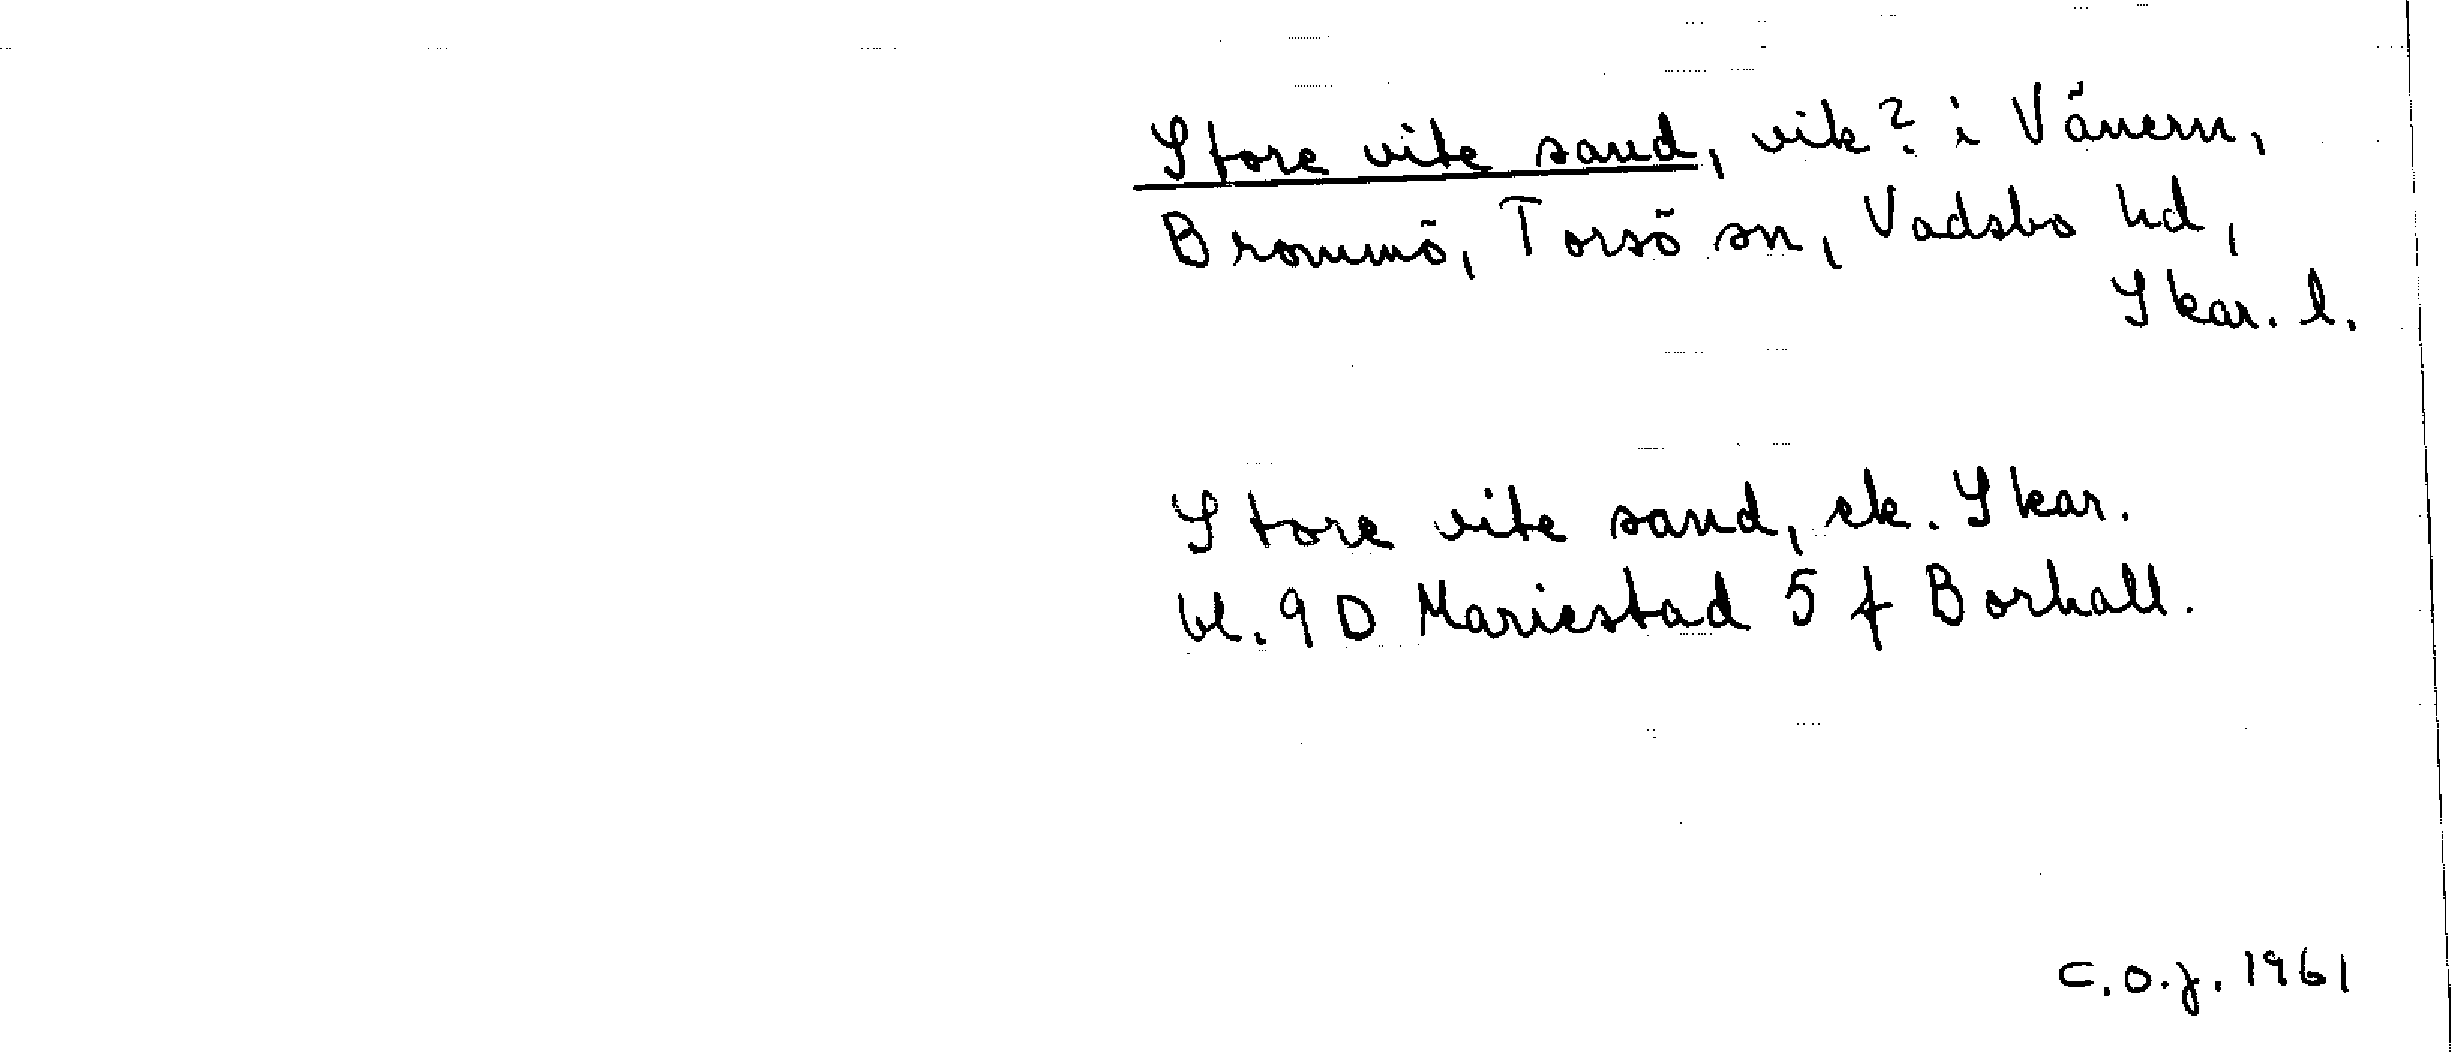 Store vite sand, vik? i Vänern,
Brommö, Torsö sn, Vadsbo hd,
Skar. l.
Store vite sand, ek. Skar.
bl. 9 D Mariestad 5 f Borhall.
C.O.J. 1961